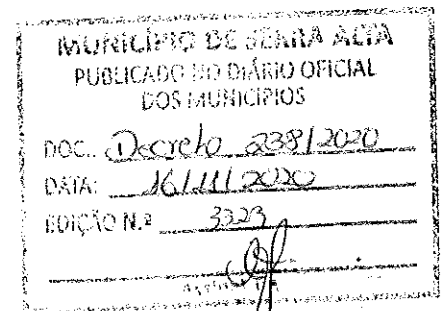 MUNICÍPIO DE SERRA ALTA
PUBLICADO NO DIÁRIO OFICIAL
DOS MUNICÍPIOS
DOC.: Decreto 238/2020
DATA: 16/11/2020
EDIÇÃO N.º 3323